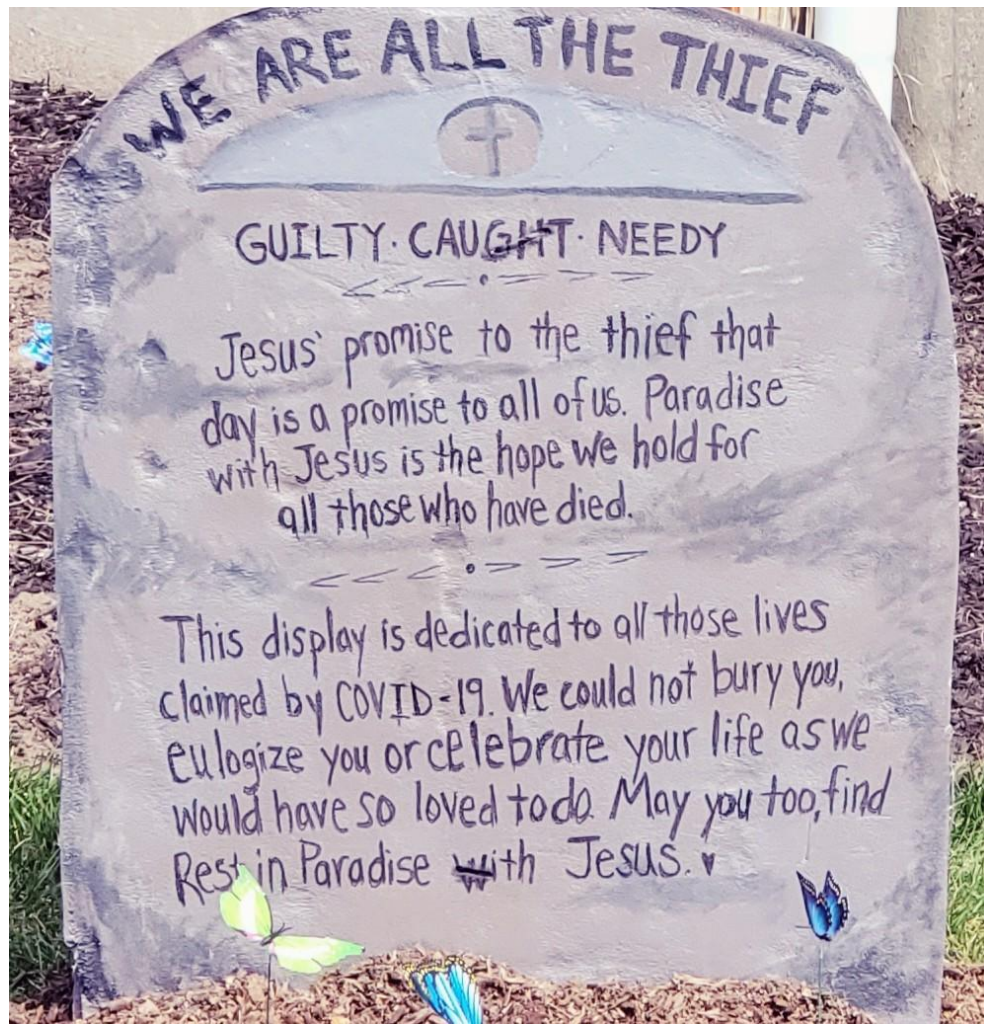 WE ARE ALL THE THIEF
GUILTY · CAUGHT · NEEDY
Jesus' promise to the thief that
day is a promise to all of us. Paradise
with Jesus is the hope we hold for
all those who have died.
This display is dedicated to all those lives
claimed by COVID-19. We could not bury you,
eulogize you or celebrate your life as we
would have so loved to do. May you too, find
Rest in Paradise with Jesus. ♥